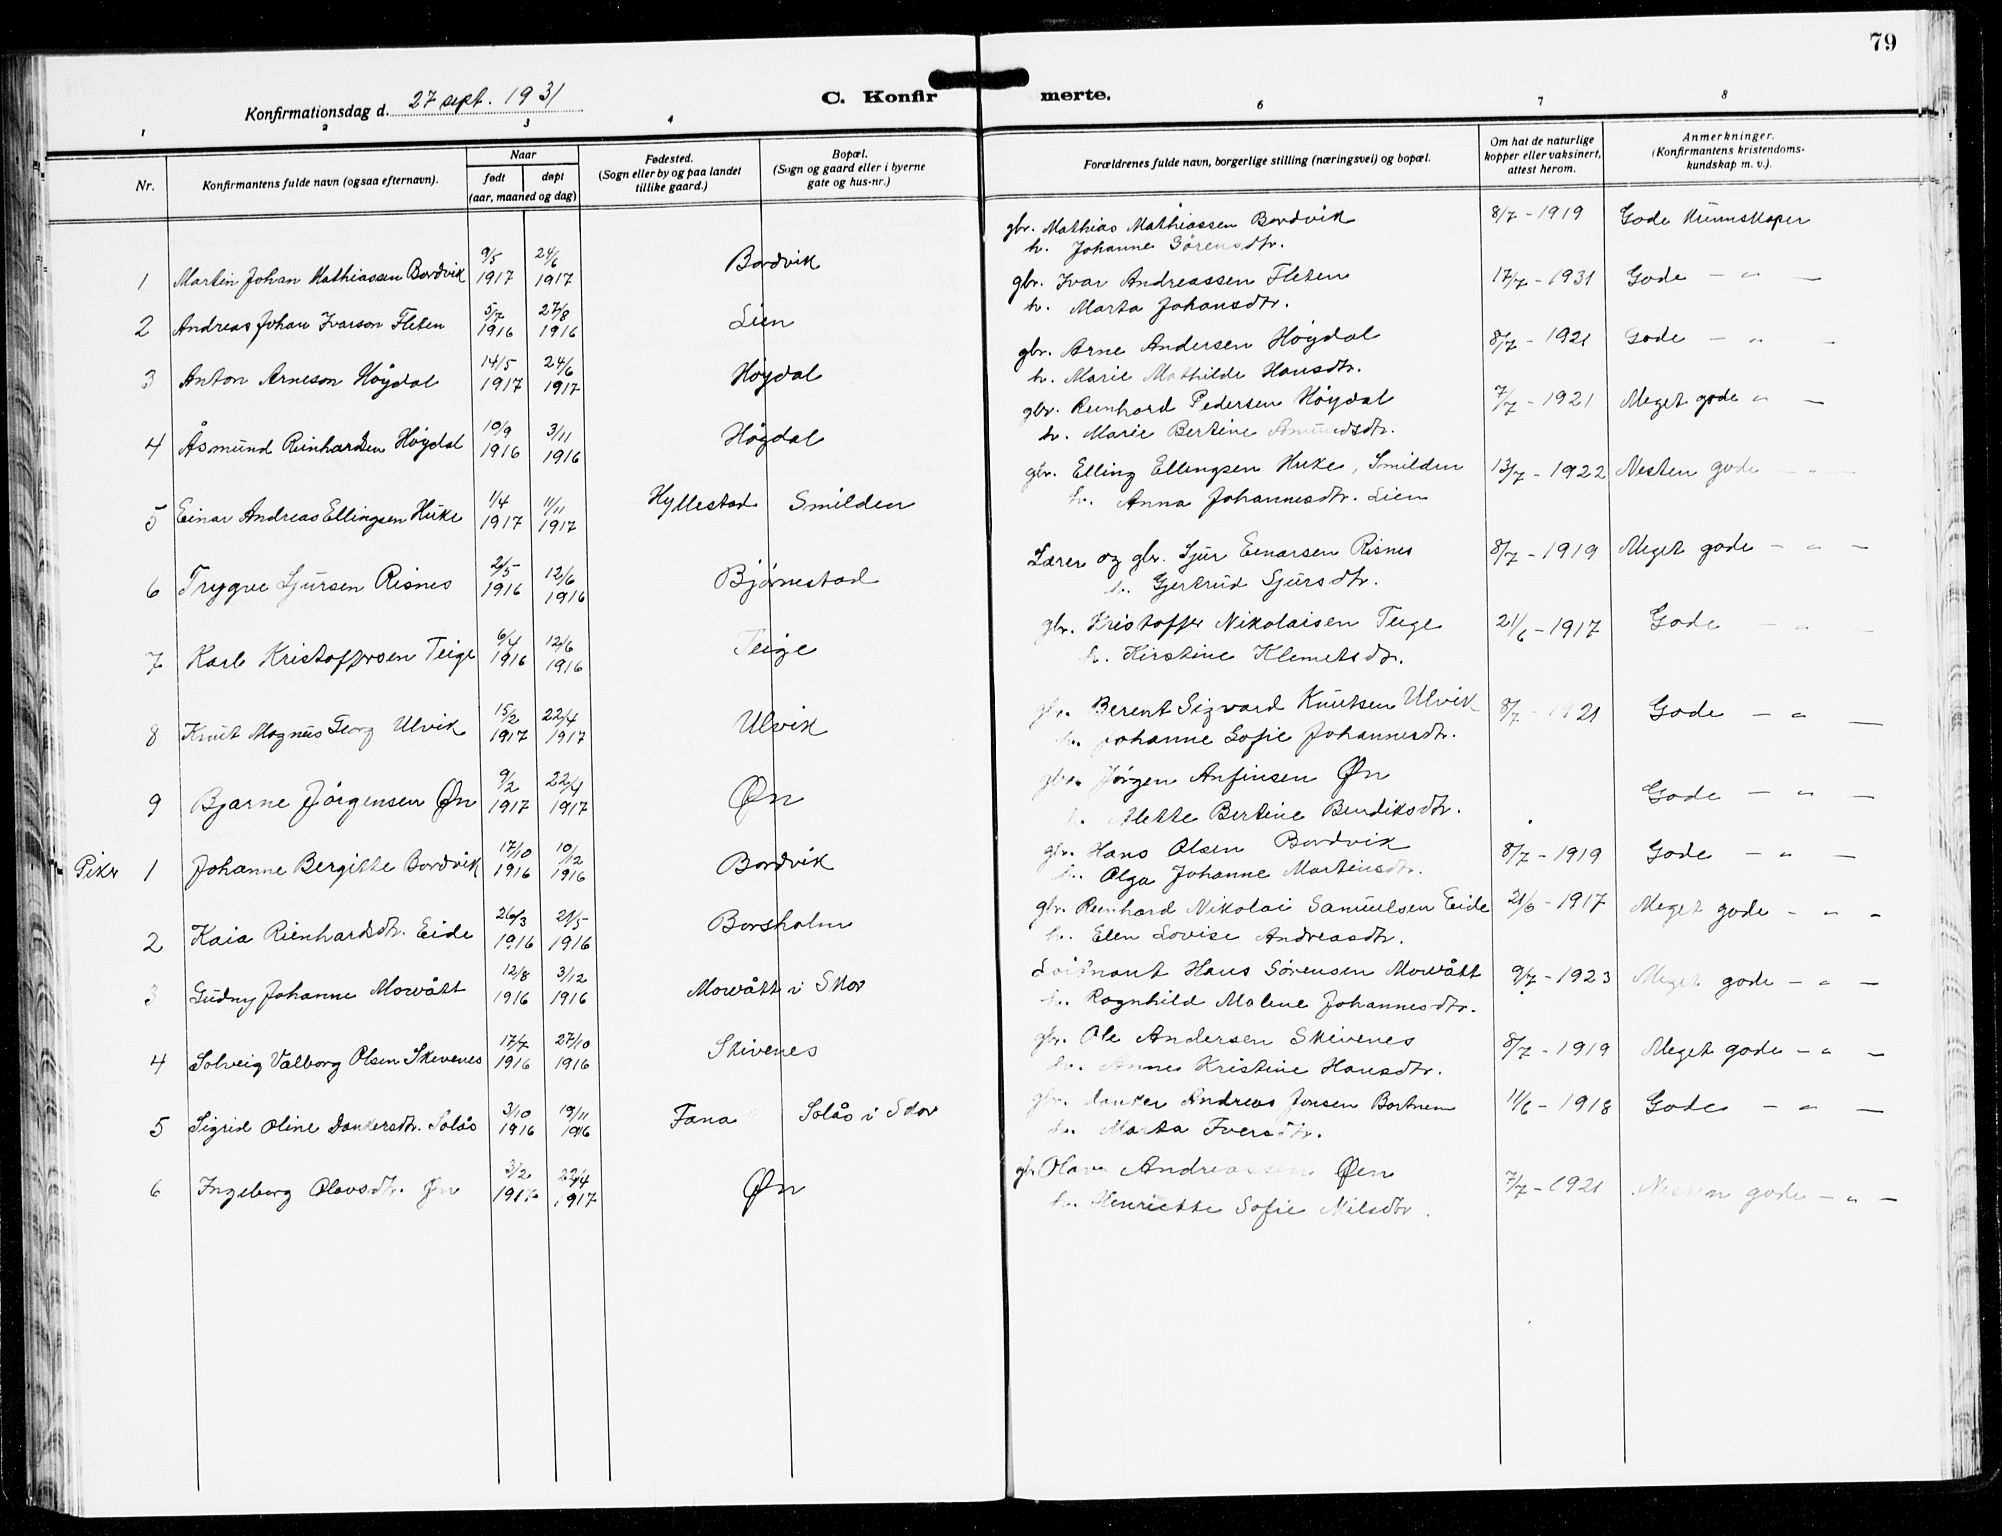 79
Konfirmationsdag d. 27 sept. 1931
C. Konfir merte.
1 2 3 4 6 7 8
Nr.
Konfirmantens fulde navn (ogsaa efternavn).
Naar
født døpt
(aar, maaned og dag)
Fødested.
(Sogn eller by og paa landet
tillike gaard.)
Bopæl.
(Sogn og gaard eller i byerne
gate og hus-nr.)
Forældrenes fulde navn, borgerlige stilling (næringsvei) og bopæl.
Om hat de naturlige
kopper eller vaksinert,
attest herom.
Anmerkninger.
(Konfirmantens kristendoms-
kundskap m. v.).
gbr. Mathias Mathiassen Bordvik 8/7 - 1919 Gode Kunnskaper
h. Johanne Sørensdtr.
9/5 24/6
1 Martin Johan Mathiassen Bordvik 1917 1917 Bordvik
gbr. Ivar Andreassen Fleten 17/7 - 1931 Gode - " -
h. Marta Johansdtr.
5/7 27/8
2 Andreas Johan Ivarson Fleten 1916 1916 Lien
gbr. Arne Andersen Høydal 8/7 - 1921 Gode - " -
h. Marie Mathilde Hansdtr.
14/5 24/6
3 Anton Arneson Høydal 1917 1917 Høydal
gbr. Reinhard Pedersen Høydal 7/7 - 1921 Meget gode " -
h. Marie Bertine Amundsdtr.
10/9 3/11
4 Åsmund Reinhardsen Høydal 1916 1916 Høydal
gbr. Elling Ellingsen Huke, Smilden 13/7 - 1922 Nesten gode - " -
h. Anna Johannesdtr. Lien
1/4 11/11
5 Einar Andreas Ellingsen Huke 1917 1917 Hyllestad Smilden
Lærer og gbr. Sjur Einarsen Risnes 8/7 - 1919 Meget gode - " -
h. Gjertrud Sjursdtr.
2/5 12/6
6 Trygve Sjursen Risnes 1916 1916 Bjørnestad
gbr. Kristoffer Nikolaisen Teige 21/6 - 1917 Gode - " -
h. Kirstine Klemetsdtr.
6/4 12/6
7 Karl Kristoffersen Teige 1916 1916 Teige
gbr. Berent Sigvard Knutsen Ulvik 8/7 - 1921 Gode - " -
h. Johanne Sofie Johannesdtr.
15/2 22/4
8 Knut Magnus Georg Ulvik 1917 1917 Ulvik
gbr. Jørgen Anfinsen Øn
h. Alette Bertine Bendiksdtr. Gode - " -
9/2 22/4
9 Bjarne Jørgensen Øn 1917 1917 Øn
gbr. Hans Olsen Bordvik 8/7 - 1919 Gode - " -
h. Olga Johanne Martinsdtr.
17/10 10/12
Piker 1 Johanne Bergitte Bordvik 1916 1916 Bordvik
gbr. Reinhard Nikolai Samuelsen Eide 21/6 - 1917 Meget gode - " -
h. Elen Lovise Andreasdtr.
26/3 21/5
2 Kaia Rienhardsdtr. Eide 1916 1916 Borsholm
Hans Sørensen Mowått 9/7 - 1923 Meget gode - " -
h. Ragnhild Malene Johannesdtr.
12/8 3/12
3 Gudny Johanne Mowått 1916 1916 Mowått i Skor
gbr. Ole Andersen Skivenes 8/7 - 1919 Meget gode - " -
h. Anne Kristine Hansdtr.
17/7 27/10
4 Solveig Valborg Olsen Skivenes 1916 1916 Skivenes
gbr. Danker Andreas Jonsen Bortnem 11/6 - 1918 Gode - " -
h. Marta Iversdtr.
3/10 19/11
5 Sigrid Oline Dankersdtr. Solås 1916 1916 Fana Solås i Skor
gbr. Olav Andreassen Øen 7/7 - 1921 Nesten gode - " -
h. Henriette Sofie Nilsdtr.
3/2 22/4
6 Ingeborg Olavsdtr. Øn 1917 1917 Øn